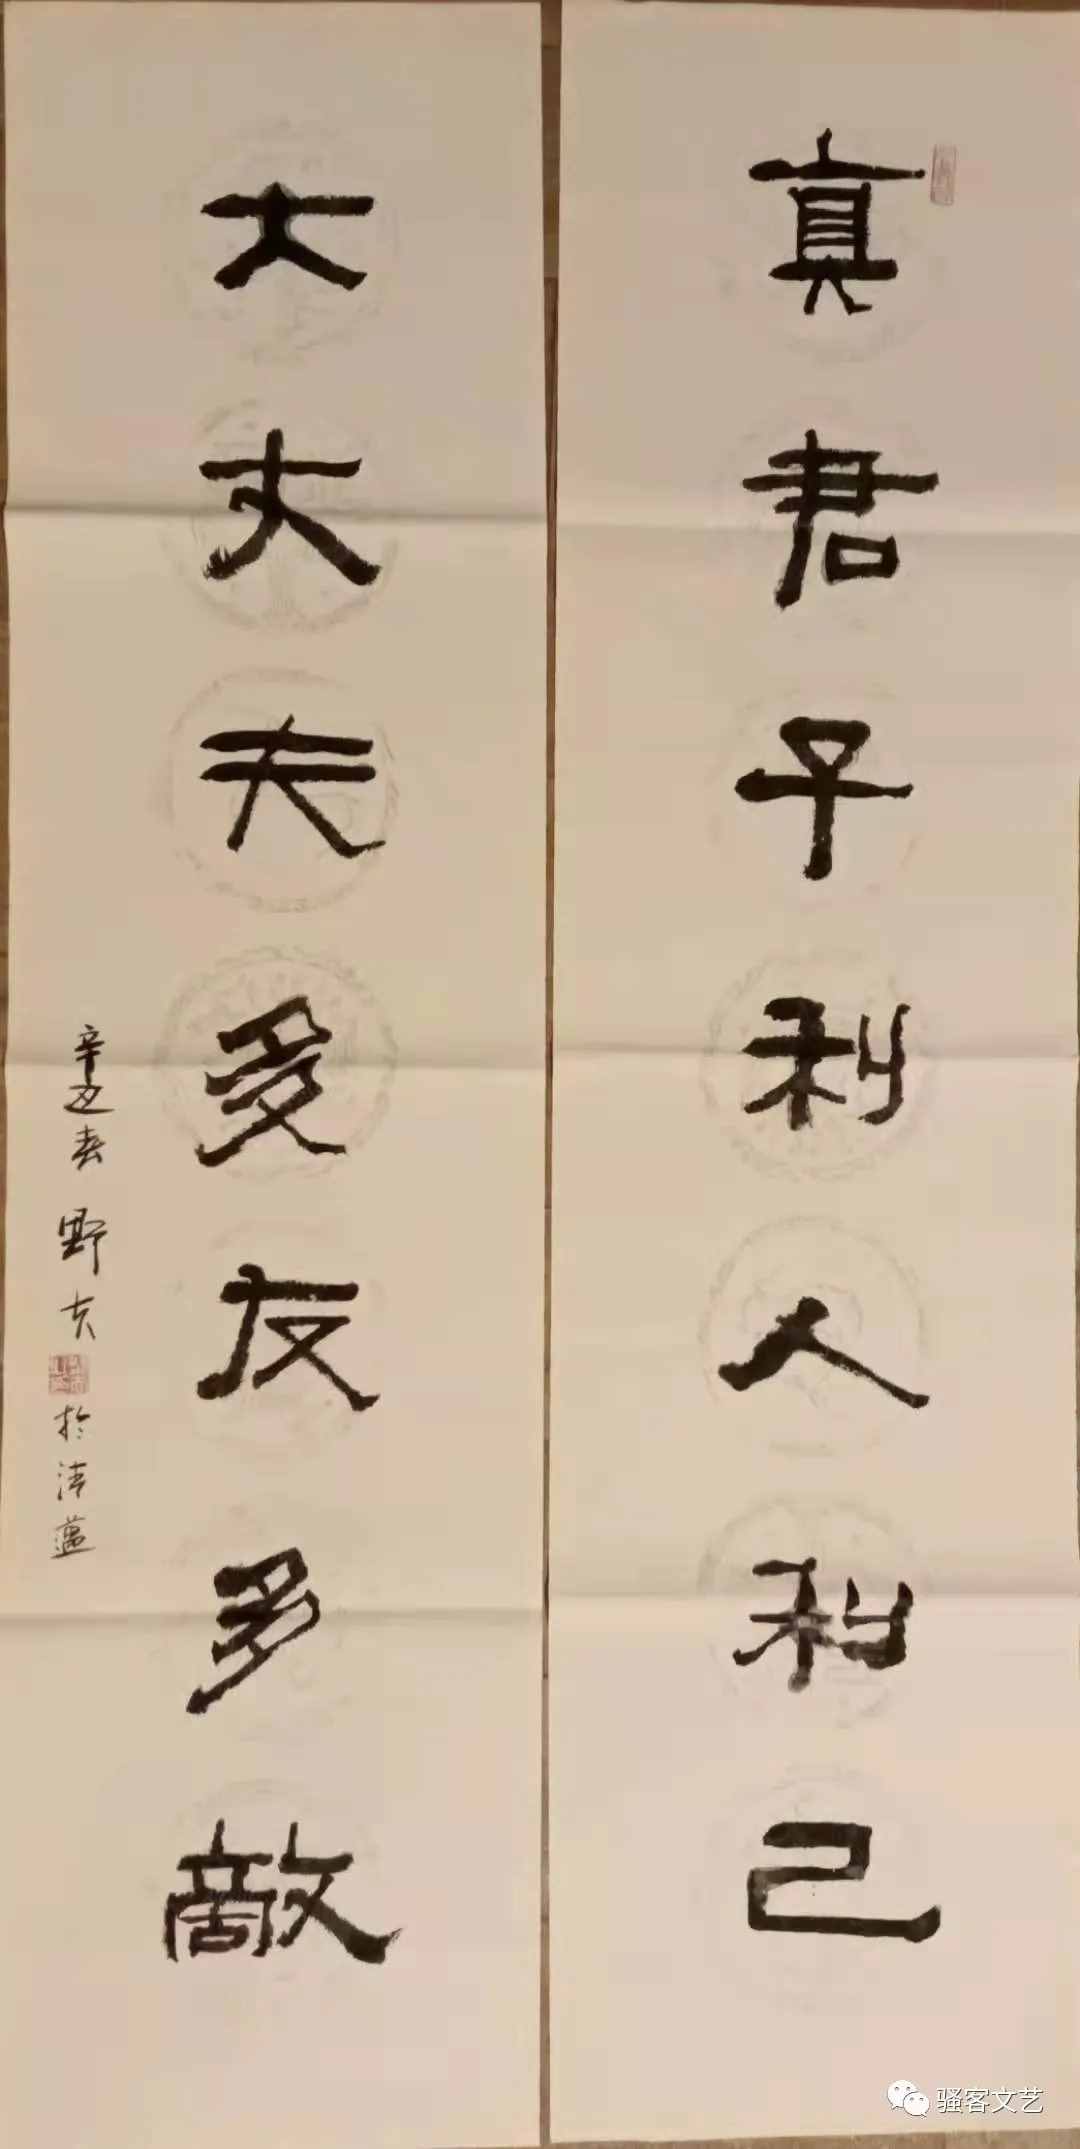 真君子利人利己
大丈夫多友多敵
辛丑春 野夫 於清邁
骚客文艺